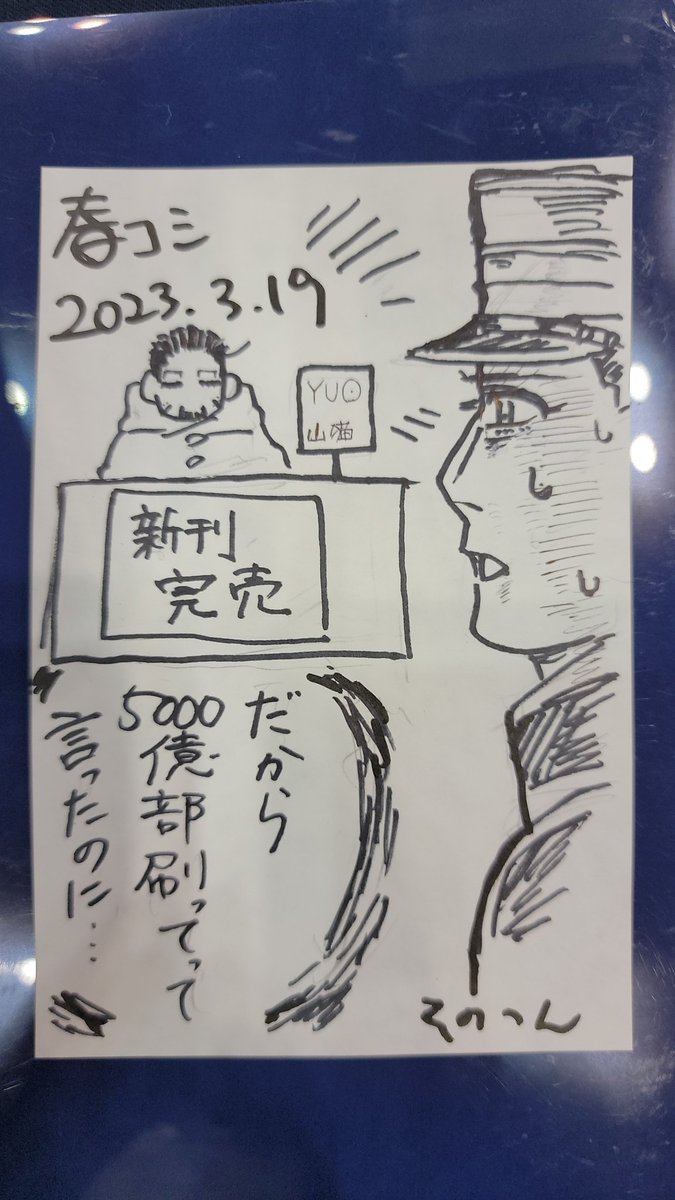 春コミ
2023.3.19
YUO
山猫
新刊
完売
だから
5000億部刷ってって
言ったのに…
そのつん